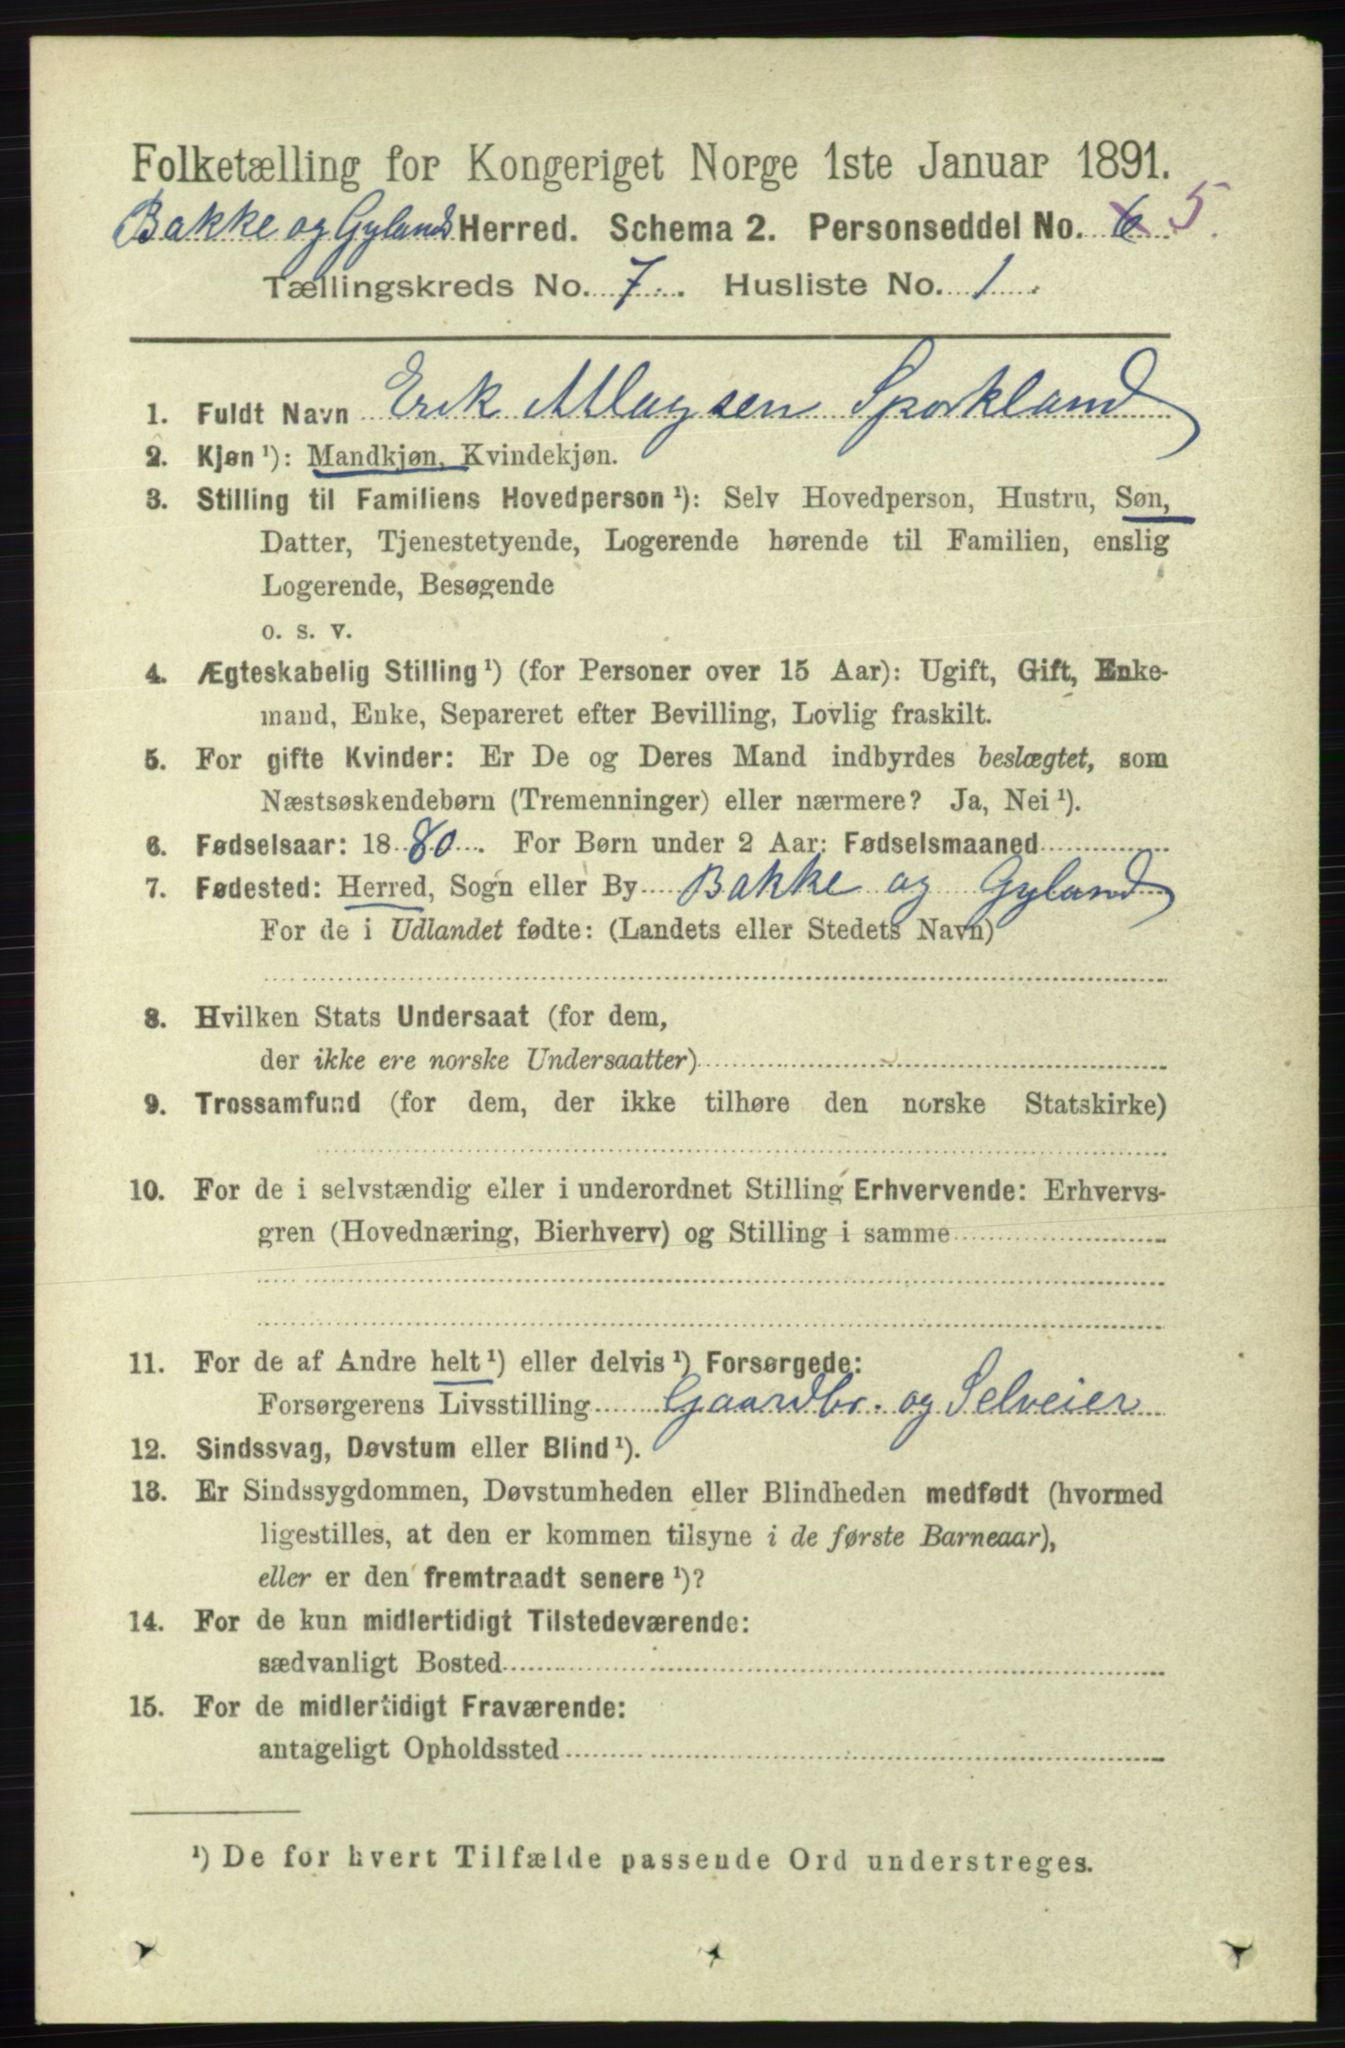 Folketælling for Kongeriget Norge 1ste Januar 1891.
Bakke og Gylands Herred. Schema 2. Personseddel No. 6 5.
Tællingskreds No. 7. Husliste No. 1.
1. Fuldt Navn Erik Sporkland
2. Kjøn ¹): Mandkjøn, Kvindekjøn.
3. Stilling til Familiens Hovedperson ¹): Selv Hovedperson, Hustru, Søn,
Datter, Tjenestetyende, Logerende hørende til Familien, enslig
Logerende, Besøgende
o. s. v.
4. Ægteskabelig Stilling ¹) (for Personer over 15 Aar): Ugift, Gift, Enke-
mand, Enke, Separeret efter Bevilling, Lovlig fraskilt.
5. For gifte Kvinder: Er De og Deres Mand indbyrdes beslægtet, som
Næstsøskendebørn (Tremenninger) eller nærmere? Ja, Nei ¹).
6. Fødselsaar: 1880. For Børn under 2 Aar: Fødselsmaaned
7. Fødested: Herred, Sogn eller By Bakke og Gyland
For de i Udlandet fødte: (Landets eller Stedets Navn)
8. Hvilken Stats Undersaat (for dem,
der ikke ere norske Undersaatter)
9. Trossamfund (for dem, der ikke tilhøre den norske Statskirke)
10. For de i selvstændig eller i underordnet Stilling Erhvervende: Erhvervs-
gren (Hovednæring, Bierhverv) og Stilling i samme
11. For de af Andre helt ¹) eller delvis ¹) Forsørgede:
Forsørgerens Livsstilling Gaardbr. og Selveier
12. Sindssvag, Døvstum eller Blind ¹).
13. Er Sindssygdommen, Døvstumheden eller Blindheden medfødt (hvormed
ligestilles, at den er kommen tilsyne i de første Barneaar),
eller er den fremtraadt senere ¹)?
14. For de kun midlertidigt Tilstedeværende:
sædvanligt Bosted
15. For de midlertidigt Fraværende:
antageligt Opholdssted
¹) De for hvert Tilfælde passende Ord understreges.